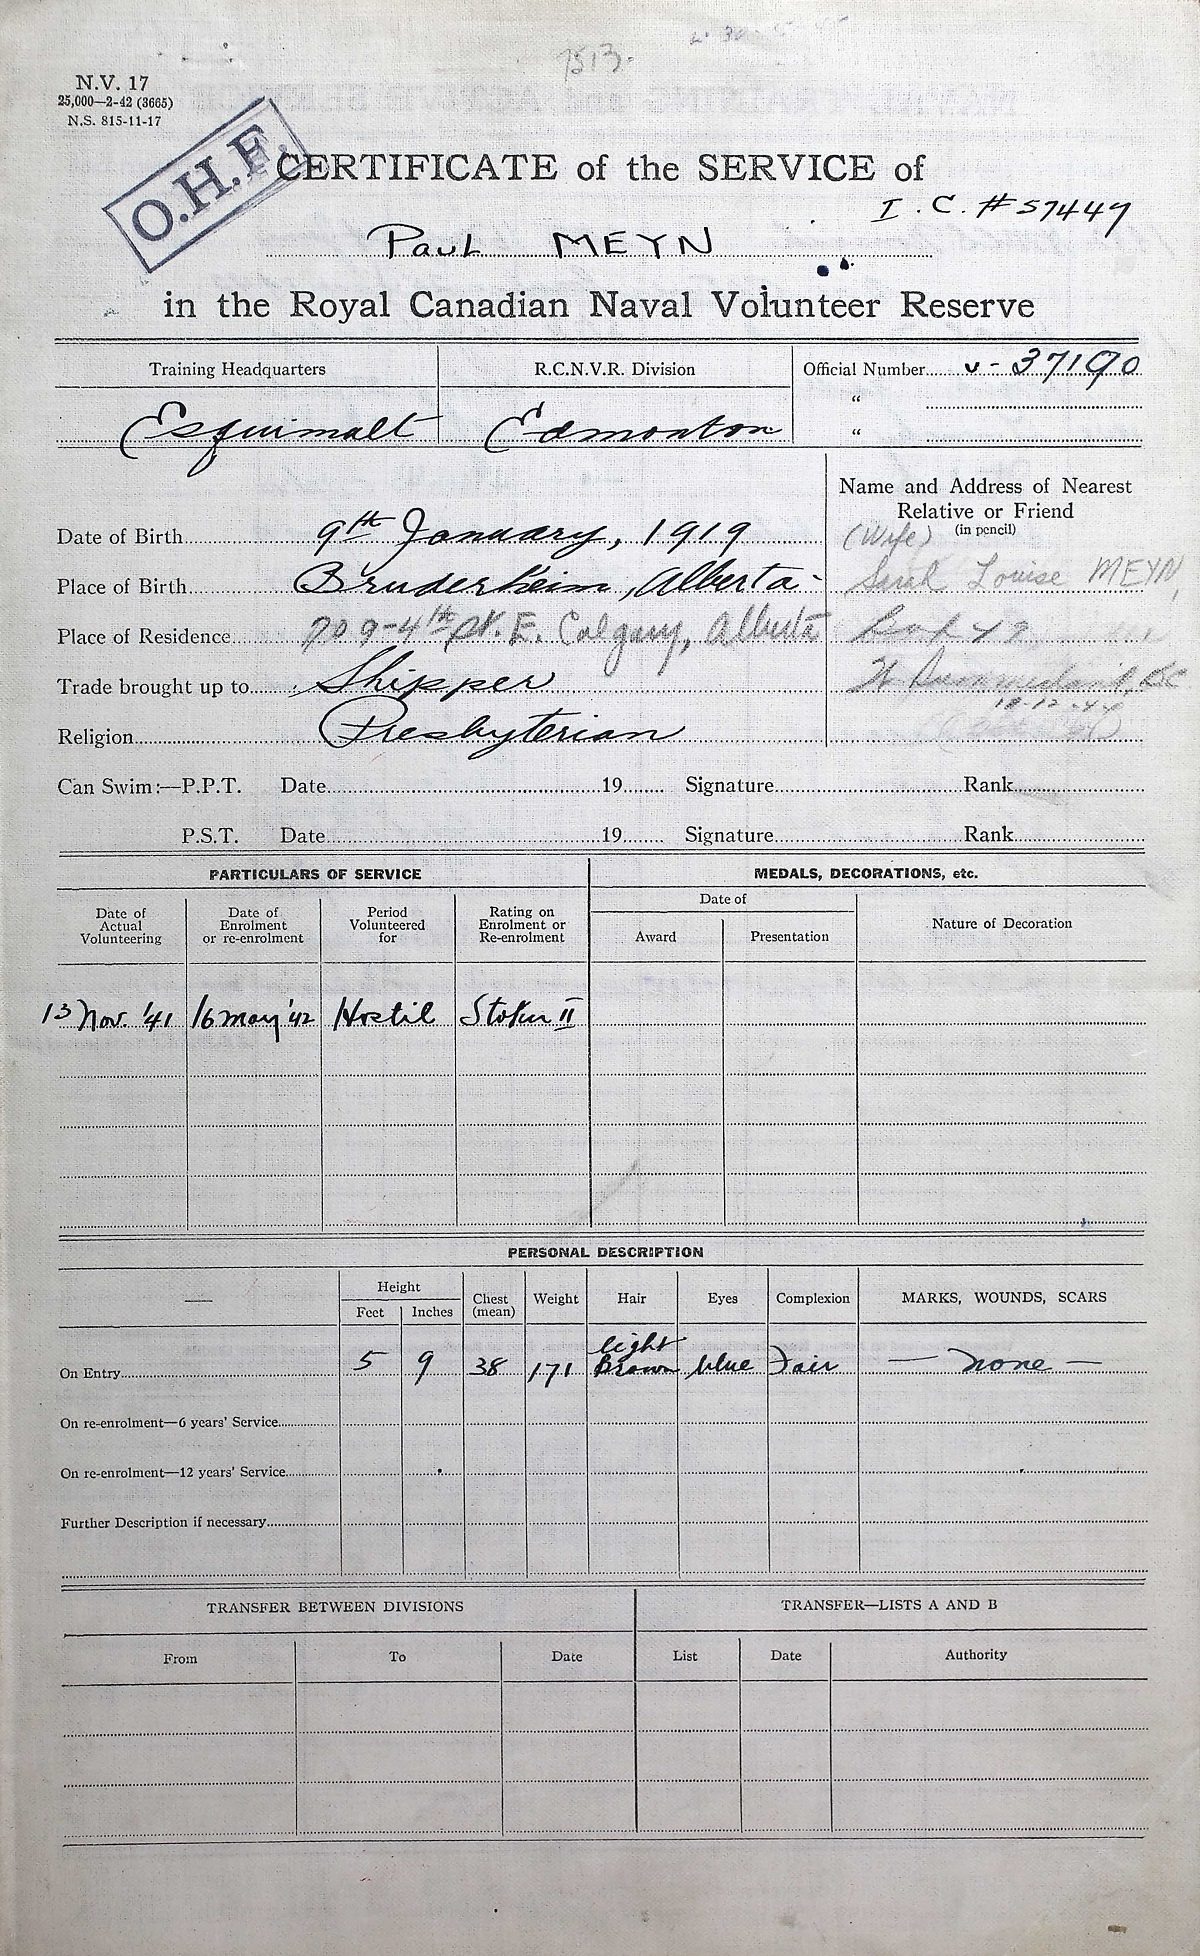 7513.
N.V. 17
25,000—2-42 (3665)
N.S. 815-11-17
O.H.F.
CERTIFICATE of the SERVICE of
I.C. # 57447
Paul MEYN
in the Royal Canadian Naval Volunteer Reserve
Training Headquarters R.C.N.V.R. Division Official Number V-37190
Esquimalt Edmonton "
"
Name and Address of Nearest
Relative or Friend
(in pencil)
Date of Birth 9th January, 1919 (Wife)
Place of Birth Bruderheim, Alberta Sarah Louise MEYN,
Place of Residence 709-4th St. N.E. Calgary, Alberta Box 42
Trade brought up to Shipper W. Summerland, BC
10-12-44
Religion Presbyterian
Can Swim:—P.P.T. Date 19 Signature Rank
P.S.T. Date 19 Signature Rank
PARTICULARS OF SERVICE MEDALS, DECORATIONS, etc.
Date of Actual Volunteering Date of Enrolment or re-enrolment Period Volunteered for Rating on Enrolment or Re-enrolment Date of Nature of Decoration
Award Presentation
13 Nov. '41 16 May '42 Hostil Stoker II
PERSONAL DESCRIPTION
— Height Chest (mean) Weight Hair Eyes Complexion MARKS, WOUNDS, SCARS
Feet Inches
On Entry 5 9 38 171 light Brown blue Fair — none —
On re-enrolment—6 years' Service
On re-enrolment—12 years' Service
Further Description if necessary
TRANSFER BETWEEN DIVISIONS TRANSFER—LISTS A AND B
From To Date List Date Authority